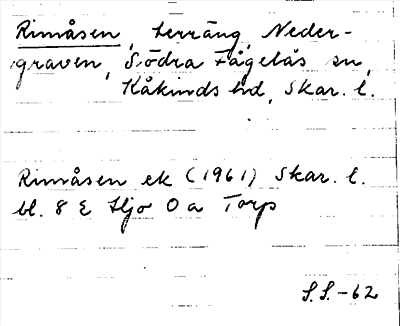 Rimåsen, terräng, Neder-
graven, Södra Fågelås sn,
Kåkinds hd, Skar. l.
Rimåsen ek (1961) Skar. l.
bl. 8 E Hjo O a Torp
S.S.-62